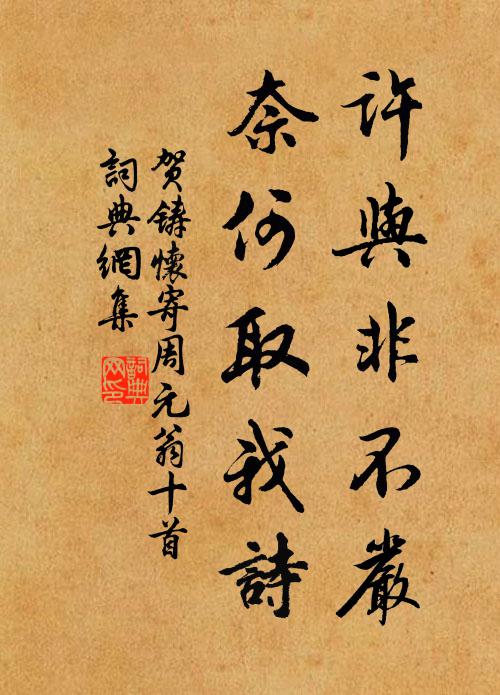 許與非不嚴
奈何取我詩
贺鑄懷寄周元翁十首
詞典網集
詞典
网印